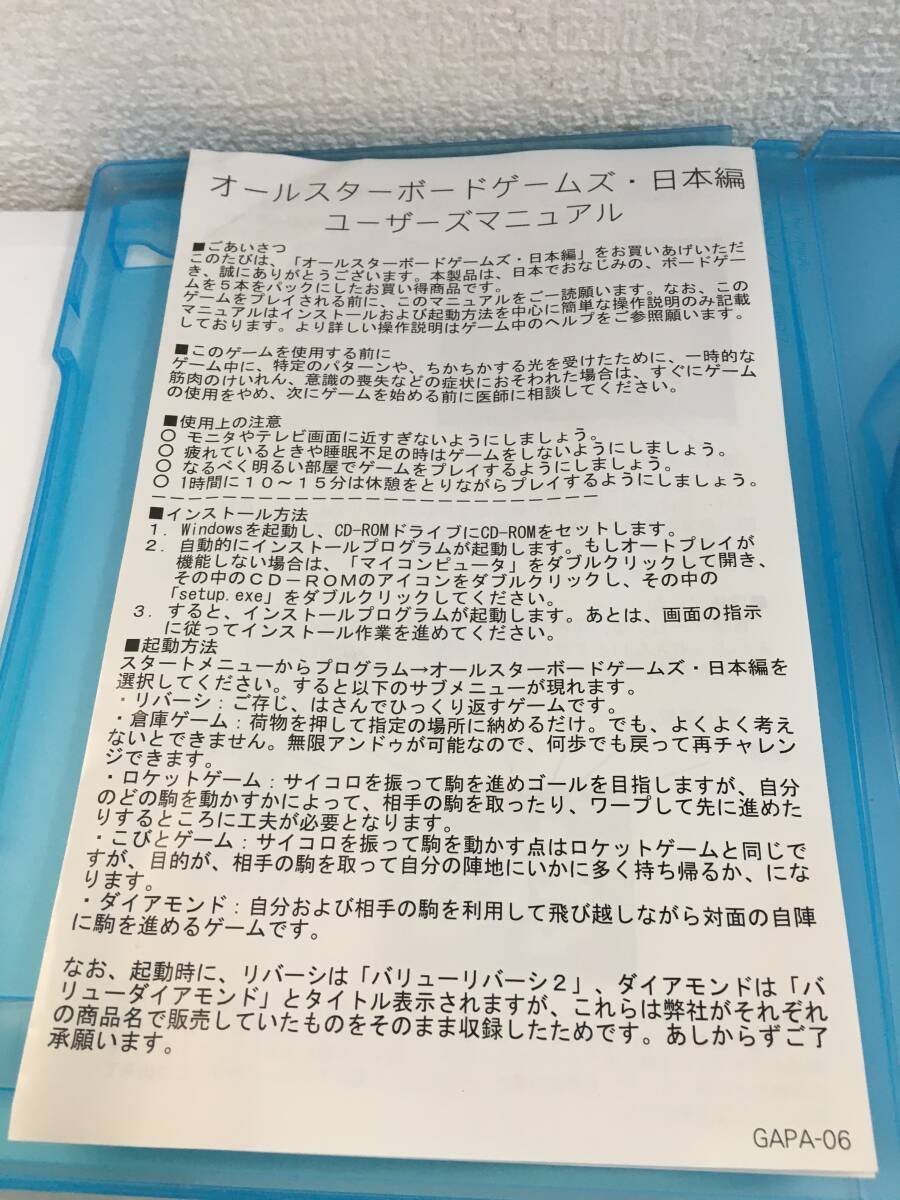 オールスターボードゲームズ・日本編
ユーザーズマニュアル
■ごあいさつ
このたびは、「オールスターボードゲームズ・日本編」をお買いあげいただ
き、誠にありがとうございます。本製品は、日本でおなじみの、ボードゲー
ムを５本をパックにしたお買い得商品です。
ゲームをプレイされる前に、このマニュアルをご一読願います。なお、この
マニュアルはインストールおよび起動方法を中心に簡単な操作説明のみ記載
しております。より詳しい操作説明はゲーム中のヘルプをご参照願います。
■このゲームを使用する前に
ゲーム中に、特定のパターンや、ちかちかする光を受けたために、一時的な
筋肉のけいれん、意識の喪失などの症状におそわれた場合は、すぐにゲーム
の使用をやめ、次にゲームを始める前に医師に相談してください。
■使用上の注意
○ モニタやテレビ画面に近すぎないようにしましょう。
○ 疲れているときや睡眠不足の時はゲームをしないようにしましょう。
○ なるべく明るい部屋でゲームをプレイするようにしましょう。
○ 1時間に１０～１５分は休憩をとりながらプレイするようにしましょう。
■インストール方法
１．Windowsを起動し、CD-ROMドライブにCD-ROMをセットします。
２．自動的にインストールプログラムが起動します。もしオートプレイが
機能しない場合は、「マイコンピュータ」をダブルクリックして開き、
その中のＣＤ－ＲＯＭのアイコンをダブルクリックし、その中の
「setup.exe」をダブルクリックしてください。
３．すると、インストールプログラムが起動します。あとは、画面の指示
に従ってインストール作業を進めてください。
■起動方法
スタートメニューからプログラム→オールスターボードゲームズ・日本編を
選択してください。すると以下のサブメニューが現れます。
・リバーシ：ご存じ、はさんでひっくり返すゲームです。
・倉庫ゲーム：荷物を押して指定の場所に納めるだけ。でも、よくよく考え
ないとできません。無限アンドゥが可能なので、何歩でも戻って再チャレン
ジできます。
・ロケットゲーム：サイコロを振って駒を進めゴールを目指しますが、自分
のどの駒を動かすかによって、相手の駒を取ったり、ワープして先に進めた
りするところに工夫が必要となります。
・こびとゲーム：サイコロを振って駒を動かす点はロケットゲームと同じで
すが、目的が、相手の駒を取って自分の陣地にいかに多く持ち帰るか、にな
ります。
・ダイアモンド：自分および相手の駒を利用して飛び越しながら対面の自陣
に駒を進めるゲームです。
なお、起動時に、リバーシは「バリューリバーシ２」、ダイアモンドは「バ
リューダイアモンド」とタイトル表示されますが、これらは弊社がそれぞれ
の商品名で販売していたものをそのまま収録したためです。あしからずご了
承願います。
GAPA-06